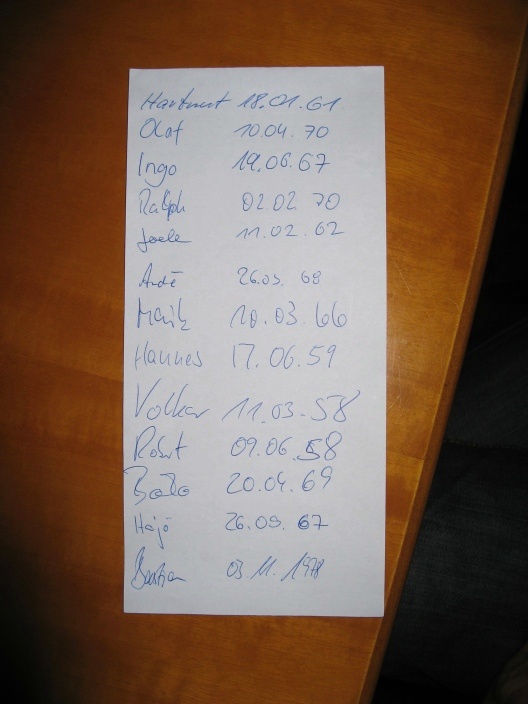 Hartmut 18.01.61
Olaf 10.04.70
Ingo 19.06.67
Ralph 02.02.70
11.02.62
André 26.03.68
Maik 10.03.66
Hannes 17.06.59
Volker 11.03.58
Robert 09.06.58
Bodo 20.04.69
Hajö 26.09.67
Bastian 03.11.1978